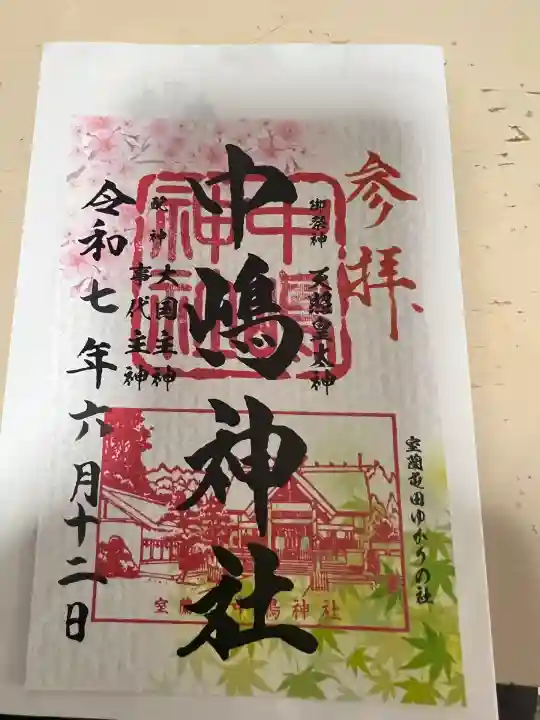 参拝
室蘭屯田ゆかりの社
御祭神 天照皇大神
中嶋神社
配神 大国主神
事代主神
令和七年六月十二日
中嶋神社
室蘭 中嶋神社